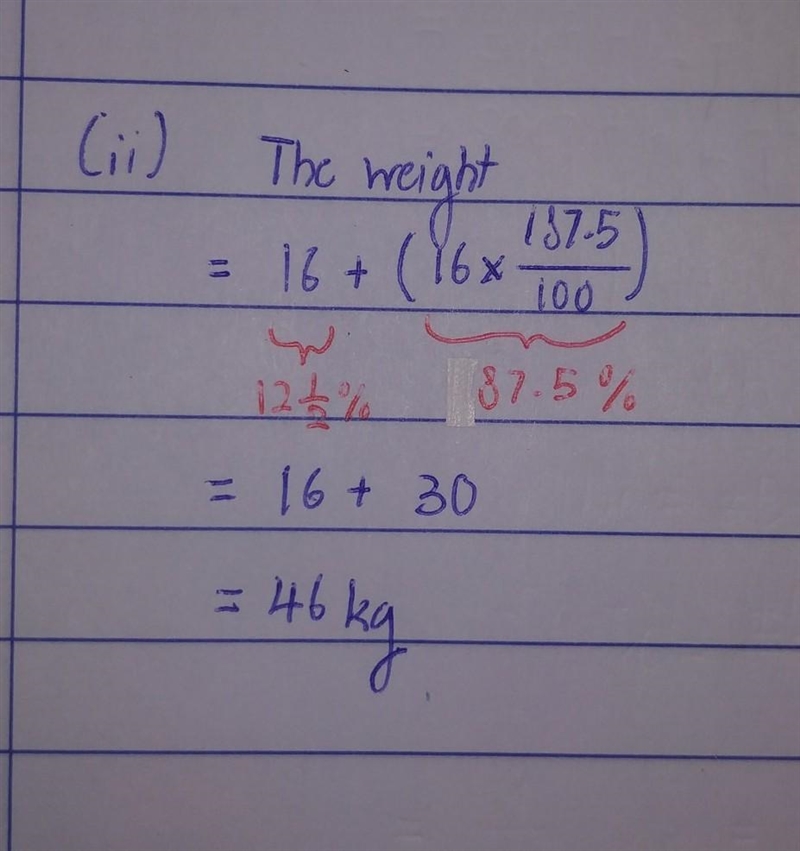 (ii) The weight
= 16 + (16 × 187.5/100)
12 1/2 % 87.5 %
= 16 + 30
= 46 kg